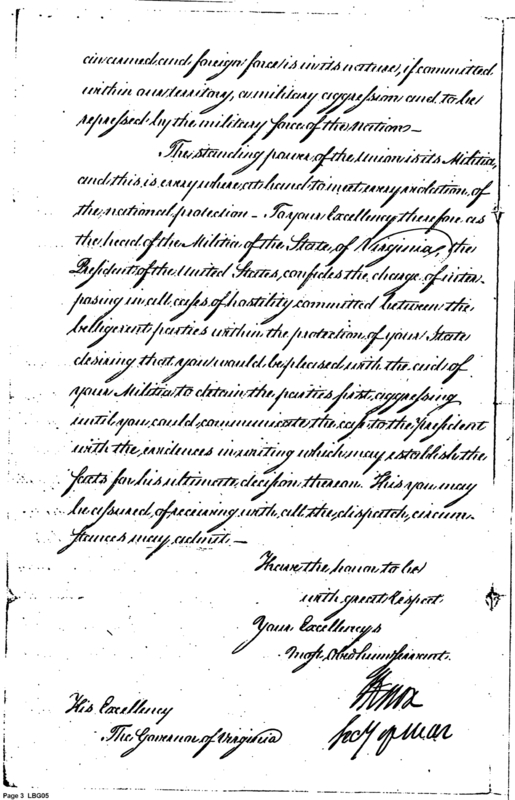 an armed and foreign force is in its nature, if committed
within our territory, a military aggression and to be
repressed by the military force of the Nation—
The standing power of the Union is its Militia,
and this is every where at hand to meet every violation of
the national protection— To your Excellency therefore as
the head of the Militia of the State, of Virginia, the
President of the United States, confides the charge of inter-
posing in all cases of hostility committed between the
belligerent parties within the protection of your State
desiring that you would be pleased with the aid of
your Militia to detain the parties first aggressing
until you could communicate the case to the President
with the evidences in writing which may establish the
facts for his ultimate decision thereon. His you may
be assured, of receiving with all the dispatch, circum-
stances may admit.—
I have the honor to be
with great Respect
Your Excellencys
most Obedient Servant.
HKnox
Secy of War
His Excellency
The Governor of Virginia
Page 3 LBG05